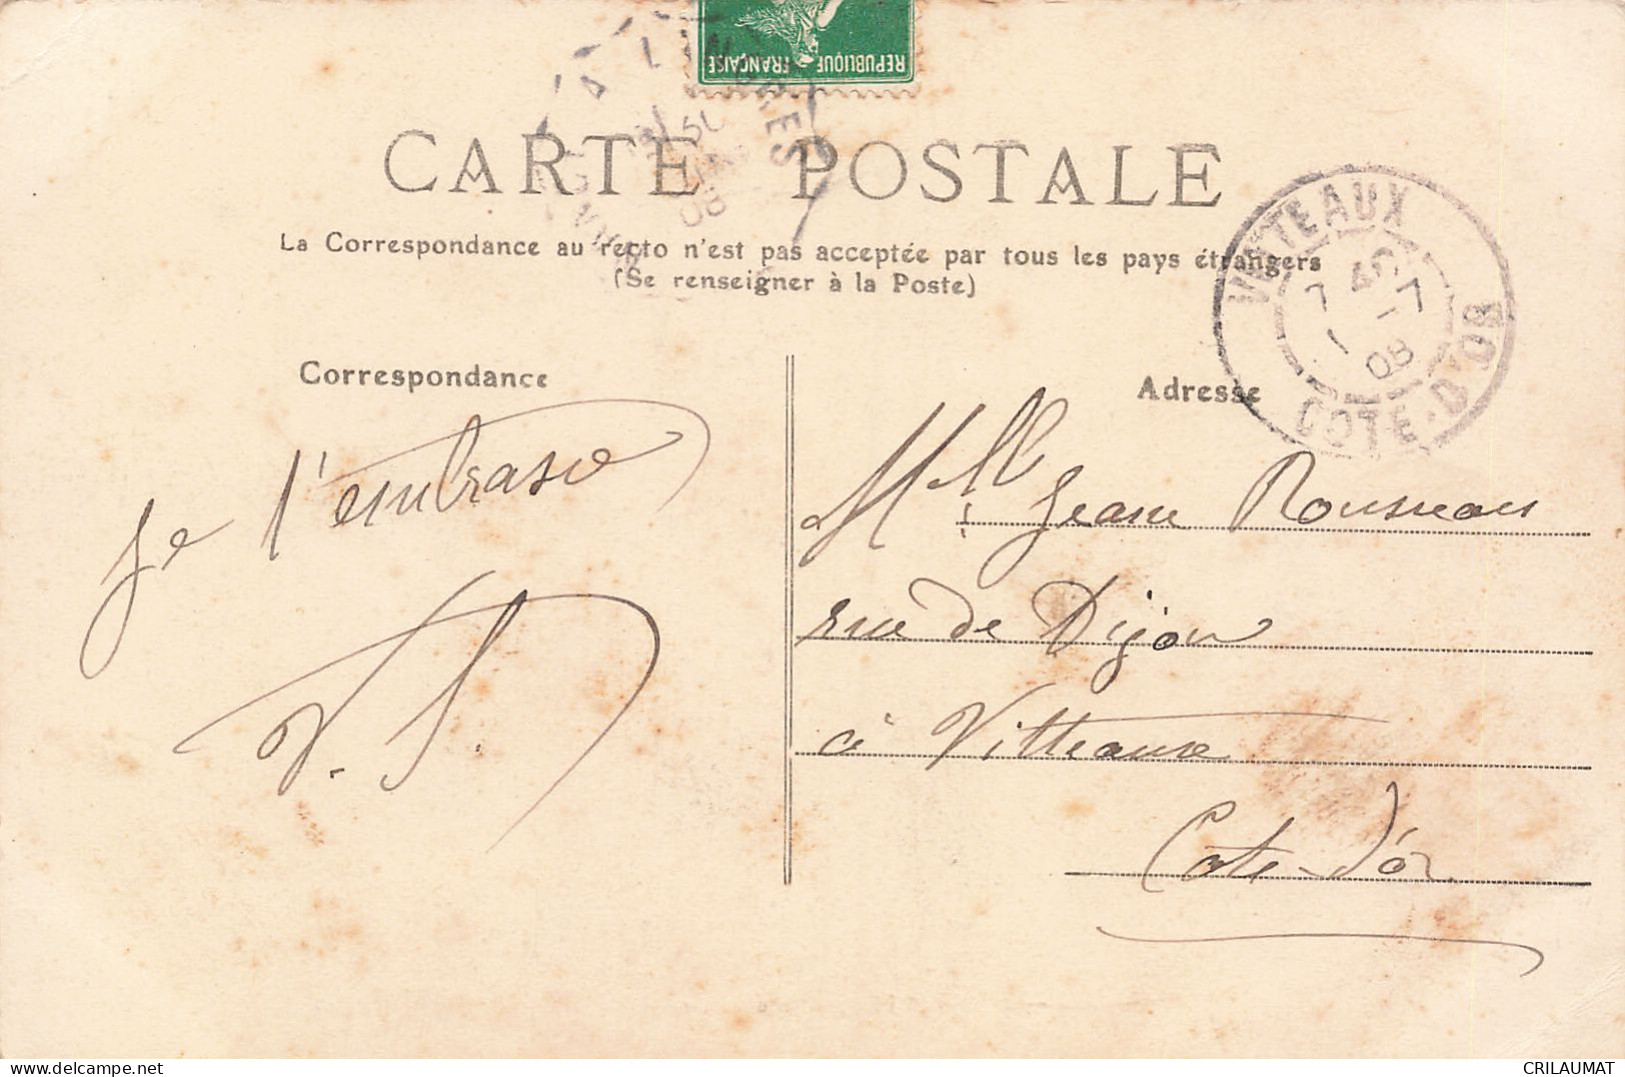 REPUBLIQUE FRANÇAISE
CARTE POSTALE
La Correspondance au recto n'est pas acceptée par tous les pays étrangers
(Se renseigner à la Poste)
VITTEAUX
7 1 -7
08
COTE-D'OR
Correspondance
Adresse
Je t'embrasse
V. S.
Mlle Jeanne Rousseau
rue de Dijon
à Vitteaux
Cote-d'or
delcampe.net
CRILAUMAT